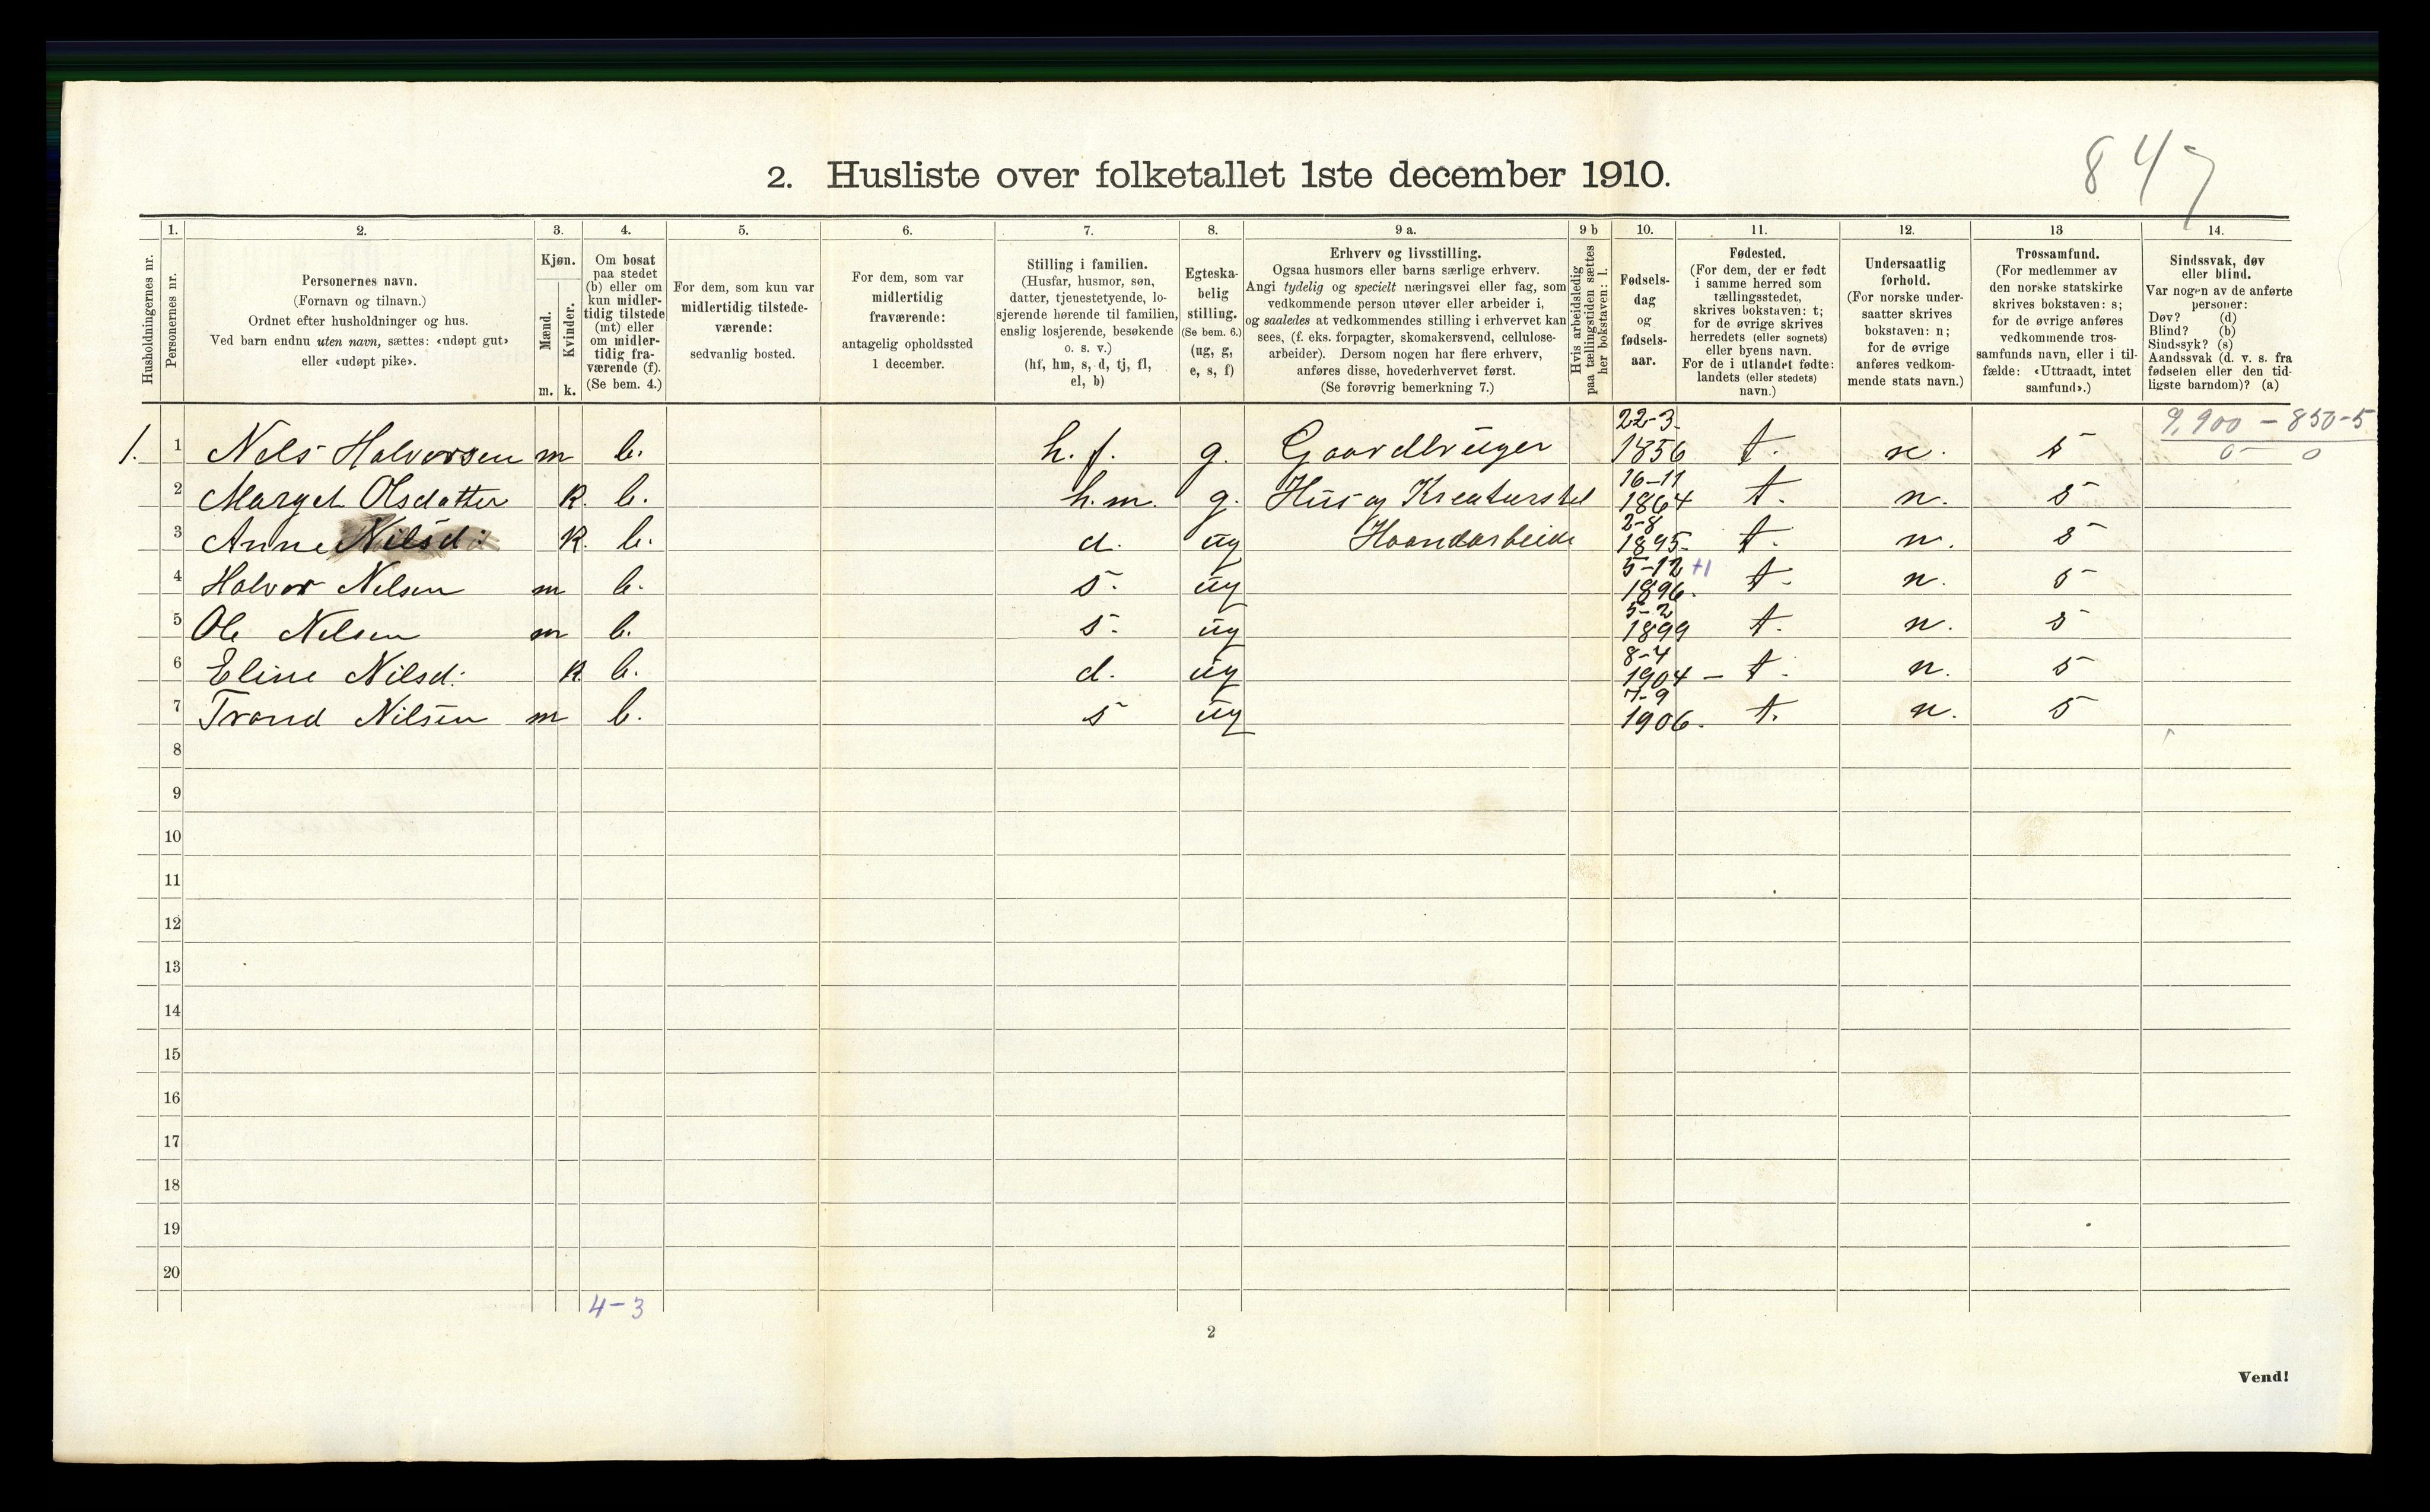 847
2. Husliste over folketallet 1ste december 1910.
Husholdningernes nr.
1.
Personernes nr.
2.
Personernes navn.
(Fornavn og tilnavn.)
Ordnet efter husholdninger og hus.
Ved barn endnu uten navn, sættes: «udøpt gut»
eller «udøpt pike».
3.
Kjøn.
Mænd.
Kvinder.
m. k.
4.
Om bosat
paa stedet
(b) eller om
kun midler-
tidig tilstede
(mt) eller
om midler-
tidig fra-
værende (f).
(Se bem. 4.)
5.
For dem, som kun var
midlertidig tilstede-
værende:
sedvanlig bosted.
6.
For dem, som var
midlertidig
fraværende:
antagelig opholdssted
1 december.
7.
Stilling i familien.
(Husfar, husmor, søn,
datter, tjenestetyende, lo-
sjerende hørende til familien,
enslig losjerende, besøkende
o. s. v.)
(hf, hm, s, d, tj, fl,
el, b)
8.
Egteska-
belig
stilling.
(Se bem. 6.)
(ug, g,
e, s, f)
9 a.
Erhverv og livsstilling.
Ogsaa husmors eller barns særlige erhverv.
Angi tydelig og specielt næringsvei eller fag, som
vedkommende person utøver eller arbeider i,
og saaledes at vedkommendes stilling i erhvervet kan
sees, (f. eks. forpagter, skomakersvend, cellulose-
arbeider). Dersom nogen har flere erhverv,
anføres disse, hovederhvervet først.
(Se forøvrig bemerkning 7.)
9 b
Hvis arbeidsledig
paa tællingstiden sættes
her bokstaven: l.
10.
Fødsels-
dag
og
fødsels-
aar.
11.
Fødested.
(For dem, der er født
i samme herred som
tællingsstedet,
skrives bokstaven: t;
for de øvrige skrives
herredets (eller sognets)
eller byens navn.
For de i utlandet fødte:
landets (eller stedets)
navn.)
12.
Undersaatlig
forhold.
(For norske under-
saatter skrives
bokstaven: n;
for de øvrige
anføres vedkom-
mende stats navn.)
13
Trossamfund.
(For medlemmer av
den norske statskirke
skrives bokstaven: s;
for de øvrige anføres
vedkommende tros-
samfunds navn, eller i til-
fælde: «Uttraadt, intet
samfund».)
14.
Sindssvak, døv
eller blind.
Var nogen av de anførte
personer:
Døv? (d)
Blind? (b)
Sindssyk? (s)
Aandssvak (d. v. s. fra
fødselen eller den tid-
ligste barndom)? (a)
9,900 - 850-5
0 - 0
1. 1 Nels Halvorsen m b. h.f. g. Gaardbruger 22-3- 1856 t. n. s
2 Marget Olsdatter k. b. h.m. g. Hus og Kreaturstel 16-11 1864 t. n. s
3 Anne Nilsd: k. b. d. ug Haandarbeide 2-8 1895- t. n. s
4 Halvor Nelsen m b. s. ug 5-12 +1 1896. t. n. s
5 Ole Nelsen m b. s. ug 5-2 1899 t. n. s
6 Eline Nilsd: k b. d. ug 8-4 1904 - t. n. s
7 Trond Nilsen m b. s ug 7-9 1906. t. n. s
8
9
10
11
12
13
14
15
16
17
18
19
20
4-3
2
Vend!